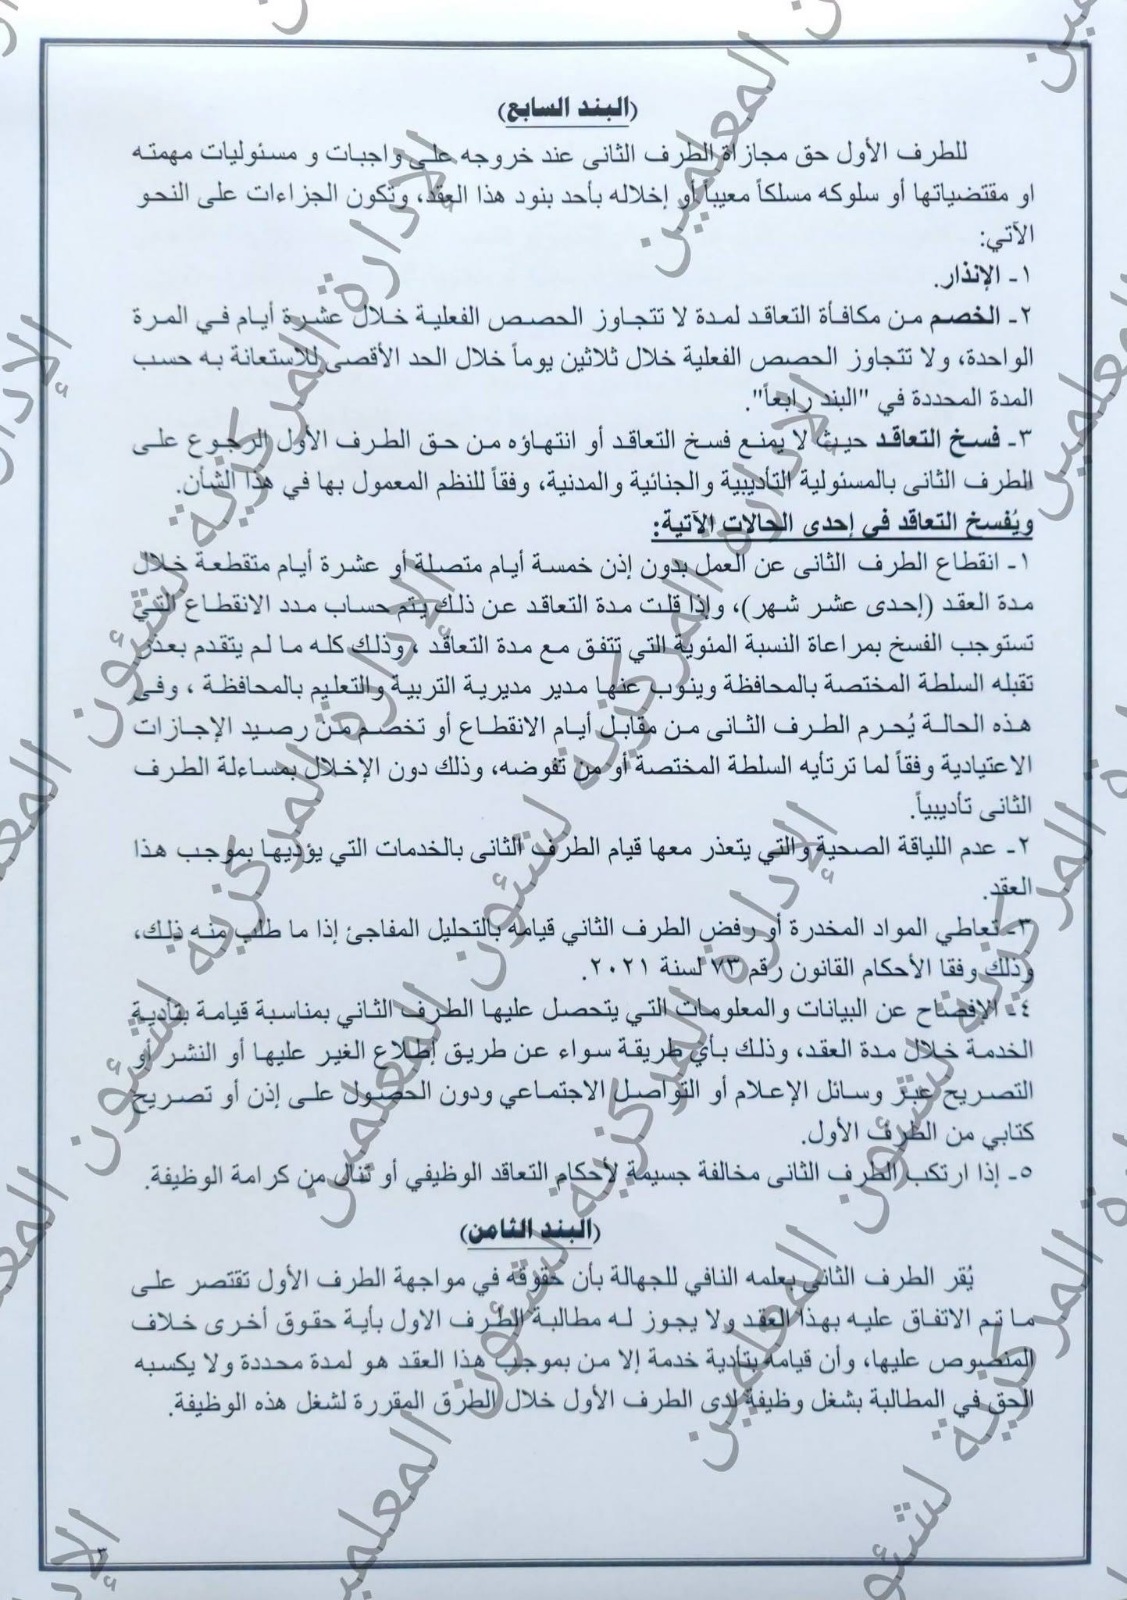 (البند السابع)
للطرف الأول حق مجازاة الطرف الثانى عند خروجه على واجبات و مسئوليات مهمته
او مقتضياتها أو سلوكه مسلكاً معيباً أو إخلاله بأحد بنود هذا العقد، وتكون الجزاءات على النحو
الآتي:
١- الإنذار.
٢- الخصم من مكافأة التعاقد لمدة لا تتجاوز الحصص الفعلية خلال عشرة أيام في المرة
الواحدة، ولا تتجاوز الحصص الفعلية خلال ثلاثين يوماً خلال الحد الأقصى للاستعانة به حسب
المدة المحددة في "البند رابعاً".
٣- فسخ التعاقد حيث لا يمنع فسخ التعاقد أو انتهاؤه من حق الطرف الأول الرجوع على
الطرف الثانى بالمسئولية التأديبية والجنائية والمدنية، وفقاً للنظم المعمول بها في هذا الشأن.
ويُفسخ التعاقد في إحدى الحالات الآتية:
١- انقطاع الطرف الثانى عن العمل بدون إذن خمسة أيام متصلة أو عشرة أيام متقطعة خلال
مدة العقد (إحدى عشر شهر)، وإذا قلت مدة التعاقد عن ذلك يتم حساب مدد الانقطاع التي
تستوجب الفسخ بمراعاة النسبة المئوية التي تتفق مع مدة التعاقد ، وذلك كله ما لم يتقدم بعذر
تقبله السلطة المختصة بالمحافظة وينوب عنها مدير مديرية التربية والتعليم بالمحافظة ، وفى
هذه الحالة يُحرم الطرف الثانى من مقابل أيام الانقطاع أو تخصم من رصيد الإجازات
الاعتيادية وفقاً لما ترتأيه السلطة المختصة أو من تفوضه، وذلك دون الإخلال بمساءلة الطرف
الثانى تأديبياً.
٢- عدم اللياقة الصحية والتي يتعذر معها قيام الطرف الثانى بالخدمات التي يؤديها بموجب هذا
العقد.
٣- تعاطي المواد المخدرة أو رفض الطرف الثاني قيامه بالتحليل المفاجئ إذا ما طلب منه ذلك،
وذلك وفقا الأحكام القانون رقم ٧٣ لسنة ٢٠٢١.
٤- الإفصاح عن البيانات والمعلومات التي يتحصل عليها الطرف الثاني بمناسبة قيامة بتأدية
الخدمة خلال مدة العقد، وذلك بأي طريقة سواء عن طريق إطلاع الغير عليها أو النشر أو
التصريح عبر وسائل الإعلام أو التواصل الاجتماعي ودون الحصول على إذن أو تصريح
كتابي من الطرف الأول.
٥- إذا ارتكب الطرف الثانى مخالفة جسيمة لأحكام التعاقد الوظيفي أو تنال من كرامة الوظيفة.
(البند الثامن)
يُقر الطرف الثانى بعلمه النافي للجهالة بأن حقوقه في مواجهة الطرف الأول تقتصر على
ما تم الاتفاق عليه بهذا العقد ولا يجوز له مطالبة الطرف الاول بأية حقوق أخرى خلاف
المنصوص عليها، وأن قيامه بتأدية خدمة إلا من بموجب هذا العقد هو لمدة محددة ولا يكسبه
الحق في المطالبة بشغل وظيفة لدى الطرف الأول خلال الطرق المقررة لشغل هذه الوظيفة.
٣
الإدارة المركزية لشئون المعلمين